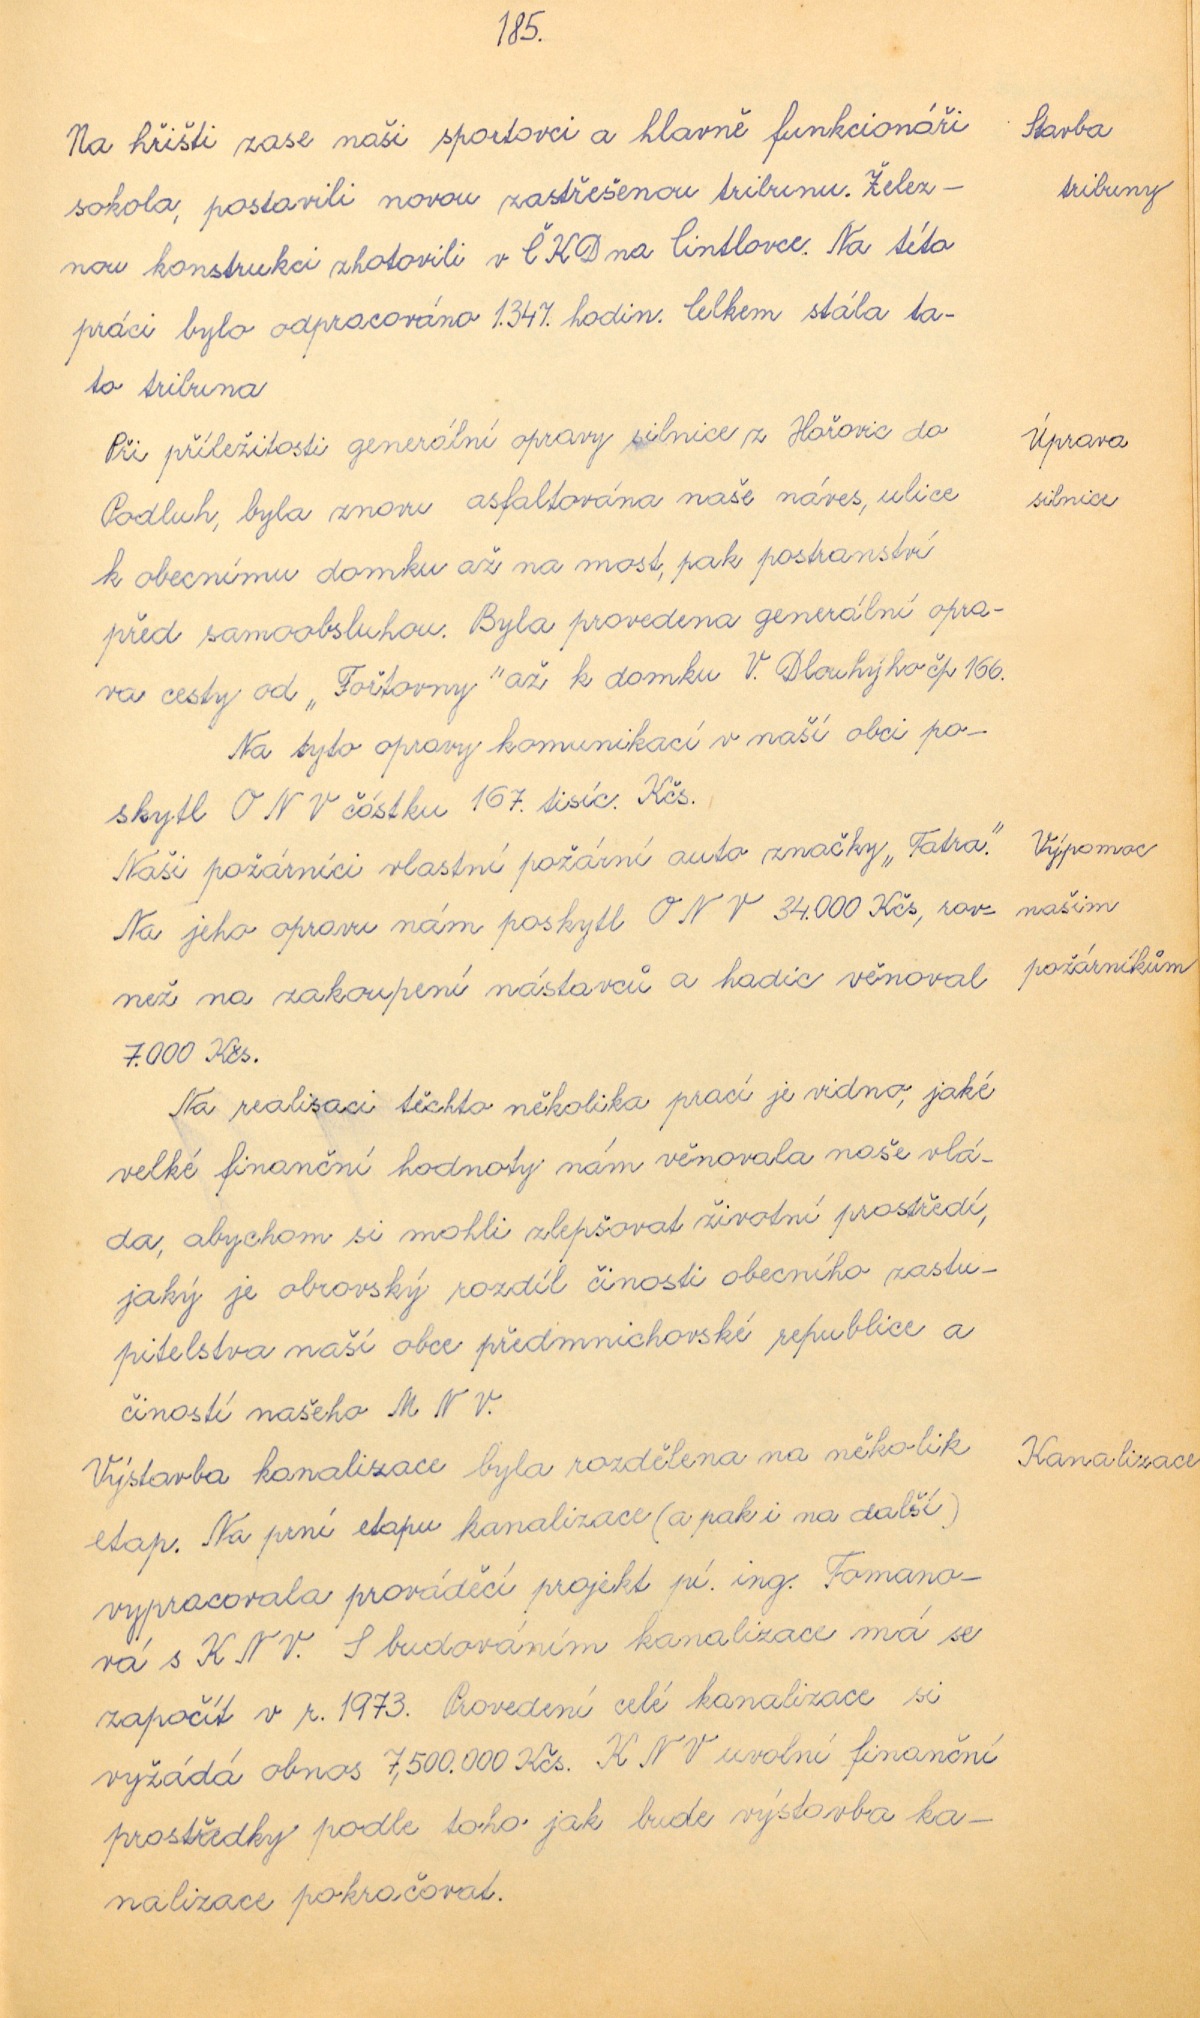 185.
Na hřišti zase naši sportovci a hlavně funkcionáři
Stavba
sokola, postavili novou zastřešenou tribunu. Želez-
tribuny
nou konstrukci zhotovili v ČKD na Cintlovce. Na této
práci bylo odpracováno 1.347. hodin. Celkem stála ta-
to tribuna
Při příležitosti generální opravy silnice z Hořovic do
Úprava
Podluh, byla znovu asfaltována naše náves, ulice
silnice
k obecnímu domku až na most, pak postranství
před samoobsluhou. Byla provedena generální opra-
va cesty od „Fořtovny" až k domku V. Dlouhýho čp 166.
Na tyto opravy komunikací v naší obci po-
skytl O N V částku 167. tisíc. Kčs.
Naši požárníci vlastní požární auto značky „Tatra."
Výpomoc
Na jeho opravu nám poskytl O N V 34.000 Kčs, rov-
našim
než na zakoupení nástavců a hadic věnoval
požárníkům
7.000 Kčs.
Na realisaci těchto několika prací je vidno, jaké
velké finanční hodnoty nám věnovala naše vlá-
da, abychom si mohli zlepšovat životní prostředí,
jaký je obrovský rozdíl činosti obecního zastu-
pitelstva naší obce předmnichovské republice a
čiností našeho M N V.
Výstavba kanalisace byla rozdělena na několik
Kanalizace
etap. Na prní etapu kanalizace (a pak i na další)
vypracovala prováděcí projekt pí. ing. Tomano-
vá s K N V. S budováním kanalizace má se
započít v r. 1973. Provedení celé kanalizace si
vyžádá obnos 7,500.000 Kčs. K N V uvolní finanční
prostředky podle toho jak bude výstavba ka-
nalizace pokračovat.